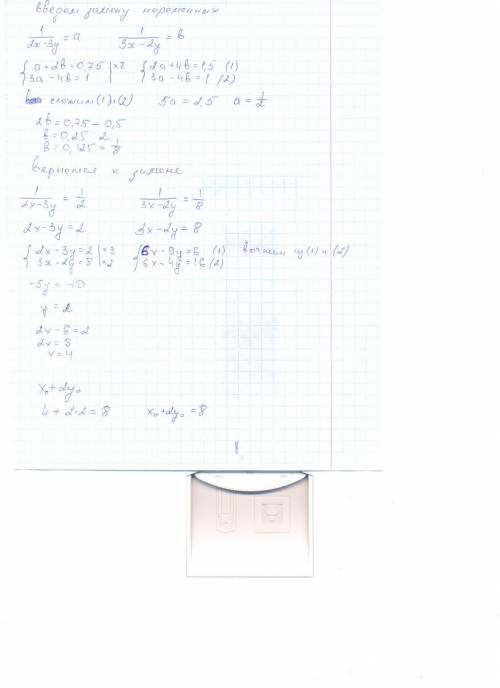 введем замену переменных
1/(2x-3y) = a   1/(3x-2y) = b
{a+2b=0,75 |×2   {2a+4b=1,5 (1)
{3a-4b=1   {3a-4b=1 (2)
сложим (1) и (2)   5a=2,5   a=1/2
2b=0,75-0,5
b=0,25:2
b=0,125=1/8
вернемся к замене
1/(2x-3y) = 1/2   1/(3x-2y) = 1/8
2x-3y=2   3x-2y=8
{2x-3y=2 |×3   {6x-9y=6 (1)   вычтем из (1) и (2)
{3x-2y=8 |×2   {6x-4y=16 (2)
-5y=-10
y=2
2x-6=2
2x=8
x=4
x₀+2y₀
4+2·2=8   x₀+2y₀=8